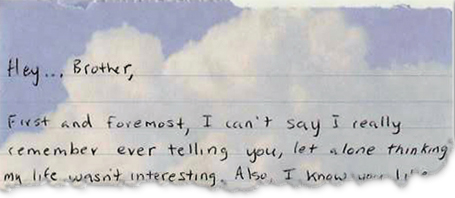 Hey... Brother,
First and foremost, I can't say I really
remember ever telling you, let alone thinking
my life wasn't interesting. Also, I know you